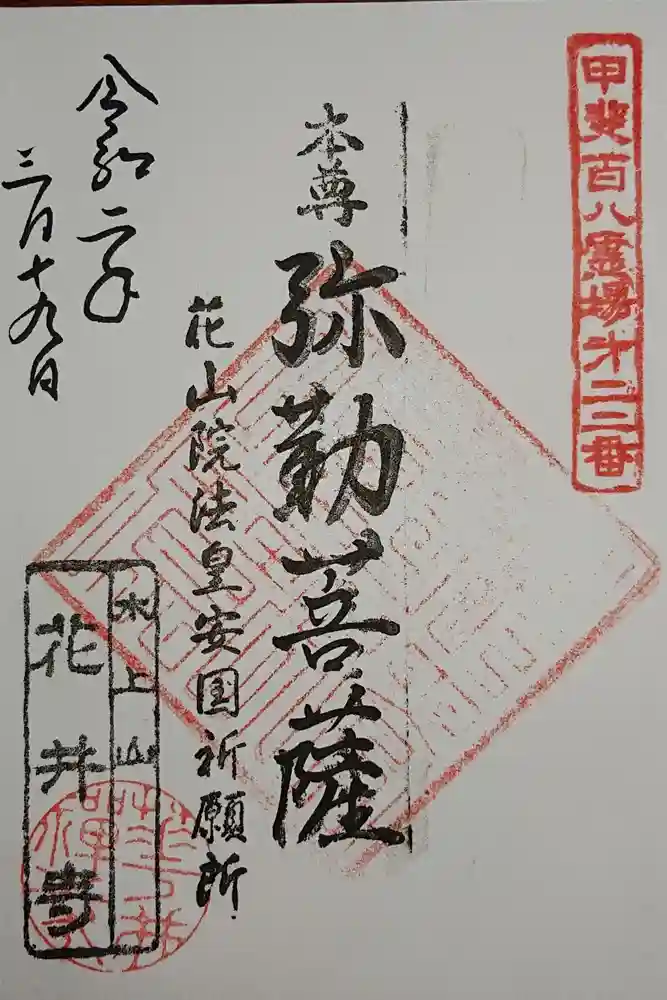 甲斐百八霊場第二二番
本尊 弥勒菩薩
花山院法皇安国祈願所
水上山
花井寺
令和二年
三月十九日